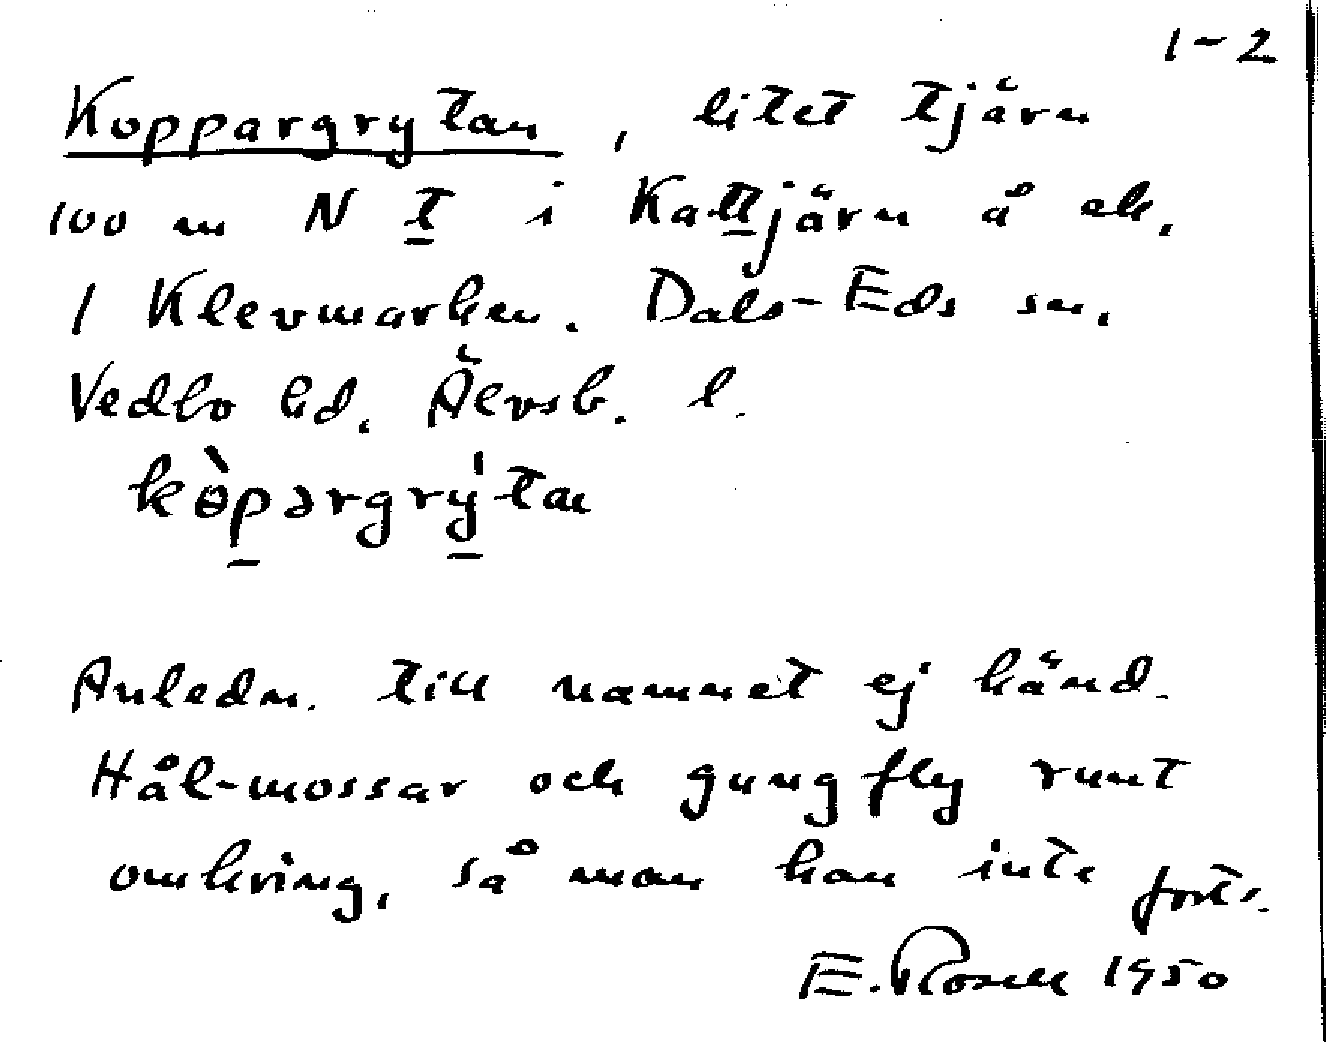 1-2
Koppargrytan, litet tjärn
100 m N t i Kattjärn å ek.
1 Klevmarken. Dals-Eds sn.
Vedbo hd. Älvsb. l.
kòpargrýtan
Anledn. till namnet ej känd.
Hål-mossar och gungfly runt
omkring, så man kan inte forts.
E. Rosell 1950